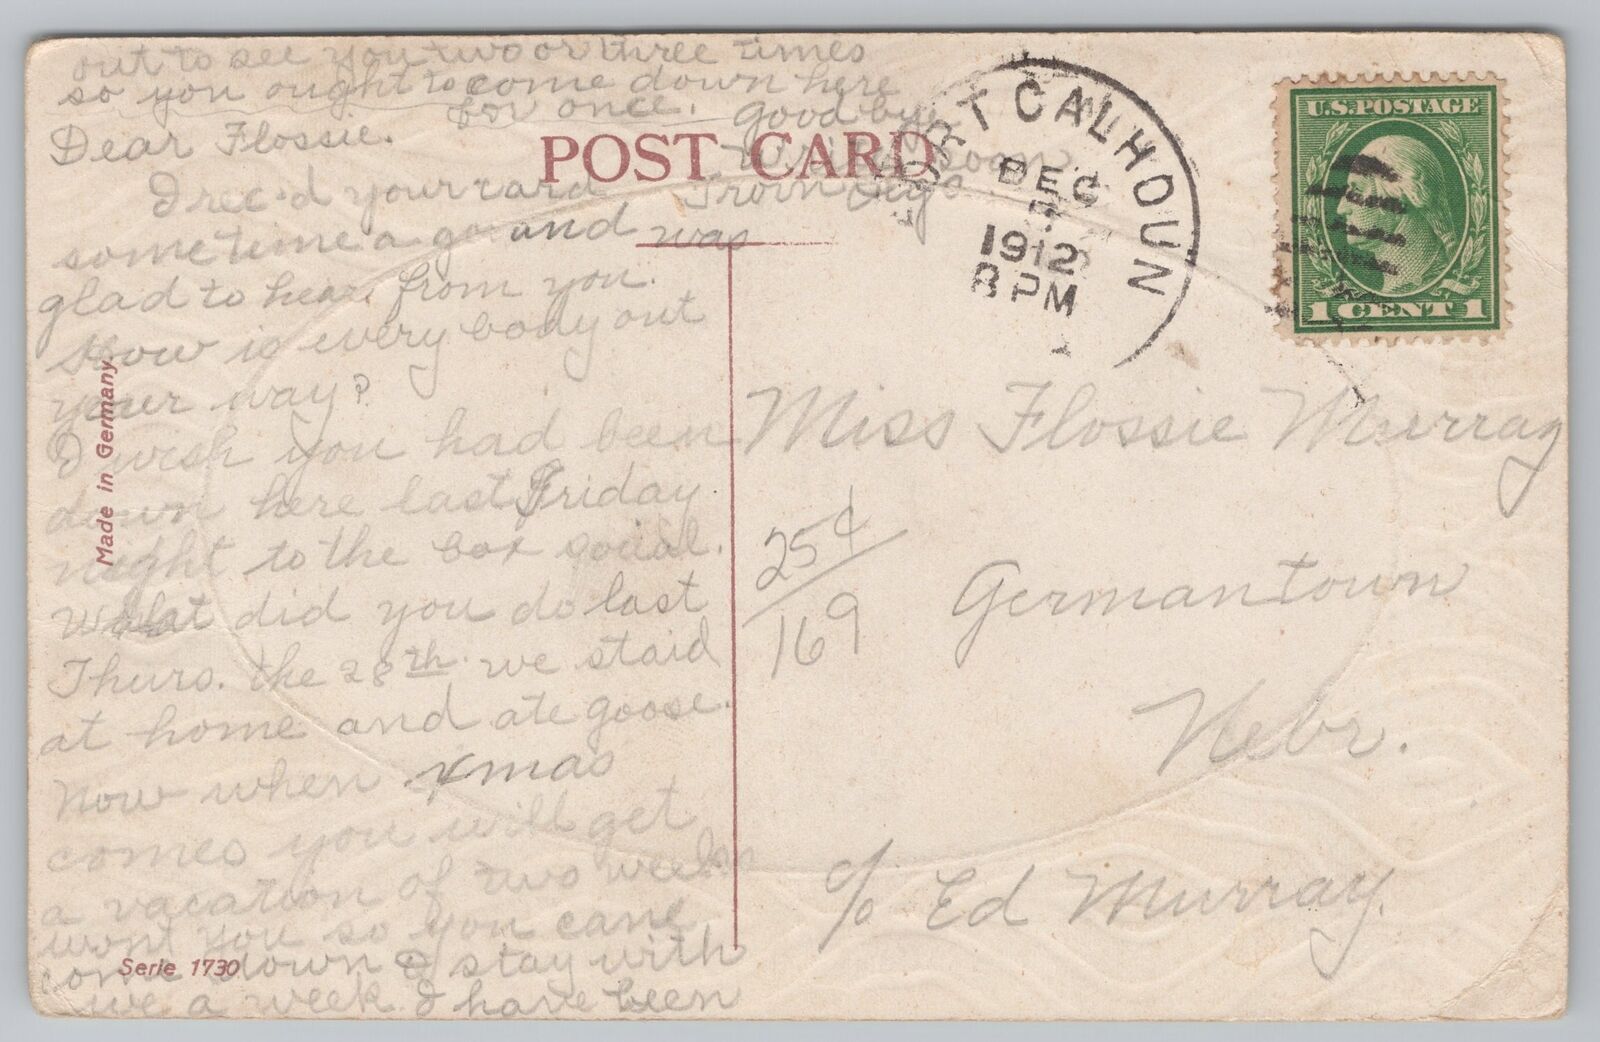 out to see you two or three times
so you ought to come down here
for once. Good bye
Write soon
From
Dear Flossie.
I rec-d your card
sometime a go and was
glad to hear from you.
How is every body out
your way?
I wish you had been
down here last Friday
night to the box social.
What did you do last
Thurs. the 28th. we staid
at home and ate goose.
Now when xmas
comes you will get
a vacation of two weeks
wont you so you cane
come down & stay with
we a week. I have been
POST CARD
Made in Germany
Serie 1730
FORT CALHOUN
DEC
7
1912
8 PM
U.S. POSTAGE
1 CENT 1
Miss Flossie Murray
25¢
169
Germantown
Nebr.
c/o Ed Murray.